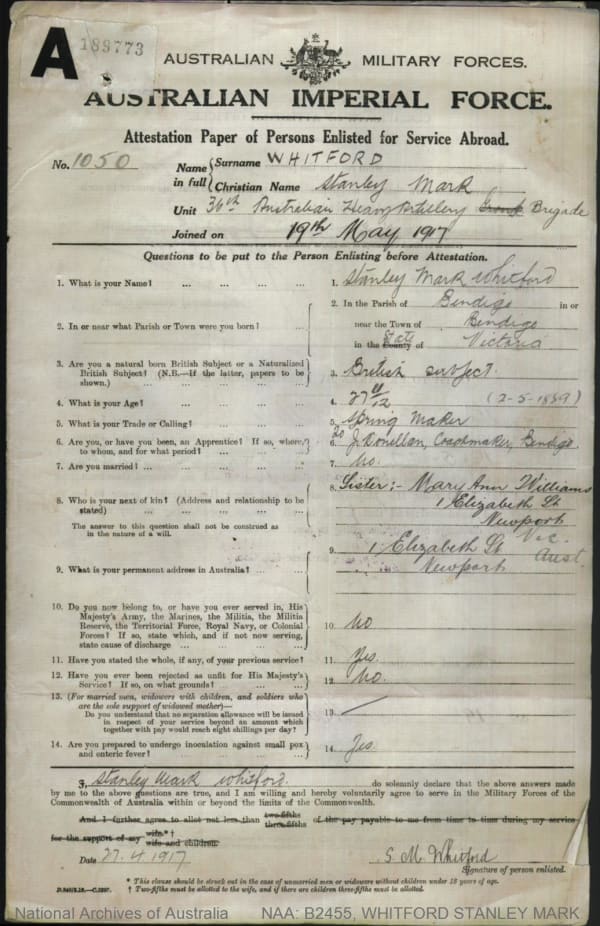 A
189773
AUSTRALIAN MILITARY FORCES.
AUSTRALIAN IMPERIAL FORCE.
Attestation Paper of Persons Enlisted for Service Abroad.
No. 1050
Name in full { Surname WHITFORD
Christian Name Stanley Mark
Unit 36th Australian Heavy Artillery Group Brigade
Joined on 19th May 1917
Questions to be put to the Person Enlisting before Attestation.
1. What is your Name? ... ... ... ... 1. Stanley Mark Whitford
2. In or near what Parish or Town were you born? ... 2. In the Parish of Bendigo in or
near the Town of Bendigo
in the County State of Victoria
3. Are you a natural born British Subject or a Naturalized
British Subject? (N.B.—If the latter, papers to be
shown.) ... ... ... ... 3. British subject.
4. What is your Age? ... ... ... ... 4. 27 11/12 (2-5-1889)
5. What is your Trade or Calling? ... ... ... 5. Spring Maker
6. Are you, or have you been, an Apprentice? If so, where,
to whom, and for what period? ... ... ... 6. J. Donellan, Coachmaker, Bendigo.
7. Are you married? ... ... ... ... 7. No.
8. Who is your next of kin? (Address and relationship to be
stated) ... ... ... ... 8. Sister:- Mary Ann Williams
1 Elizabeth St
Newport
Vic.
Aust
The answer to this question shall not be construed as
in the nature of a will.
9. What is your permanent address in Australia? ... ... 9. 1 Elizabeth St
Newport
10. Do you now belong to, or have you ever served in, His
Majesty's Army, the Marines, the Militia, the Militia
Reserve, the Territorial Force, Royal Navy, or Colonial
Forces? If so, state which, and if not now serving,
state cause of discharge ... ... ... ... 10. No
11. Have you stated the whole, if any, of your previous service? 11. Yes.
12. Have you ever been rejected as unfit for His Majesty's
Service? If so, on what grounds? ... ... 12. No.
13. (For married men, widowers with children, and soldiers who
are the sole support of widowed mother)—
Do you understand that no separation allowance will be issued
in respect of your service beyond an amount which
together with pay would reach eight shillings per day? 13.
14. Are you prepared to undergo inoculation against small pox
and enteric fever? ... ... ... ... 14. Yes
I, Stanley Mark Whitford. do solemnly declare that the above answers made
by me to the above questions are true, and I am willing and hereby voluntarily agree to serve in the Military Forces of the
Commonwealth of Australia within or beyond the limits of the Commonwealth.
And I further agree to allot not less than two-fifths three-fifths of the pay payable to me from time to time during my service
for the support of my wife.*† wife and children.
Date 27.4.1917
S. M. Whitford
Signature of person enlisted.
* This clause should be struck out in the case of unmarried men or widowers without children under 18 years of age.
† Two-fifths must be allotted to the wife, and if there are children three-fifths must be allotted.
National Archives of Australia NAA: B2455, WHITFORD STANLEY MARK